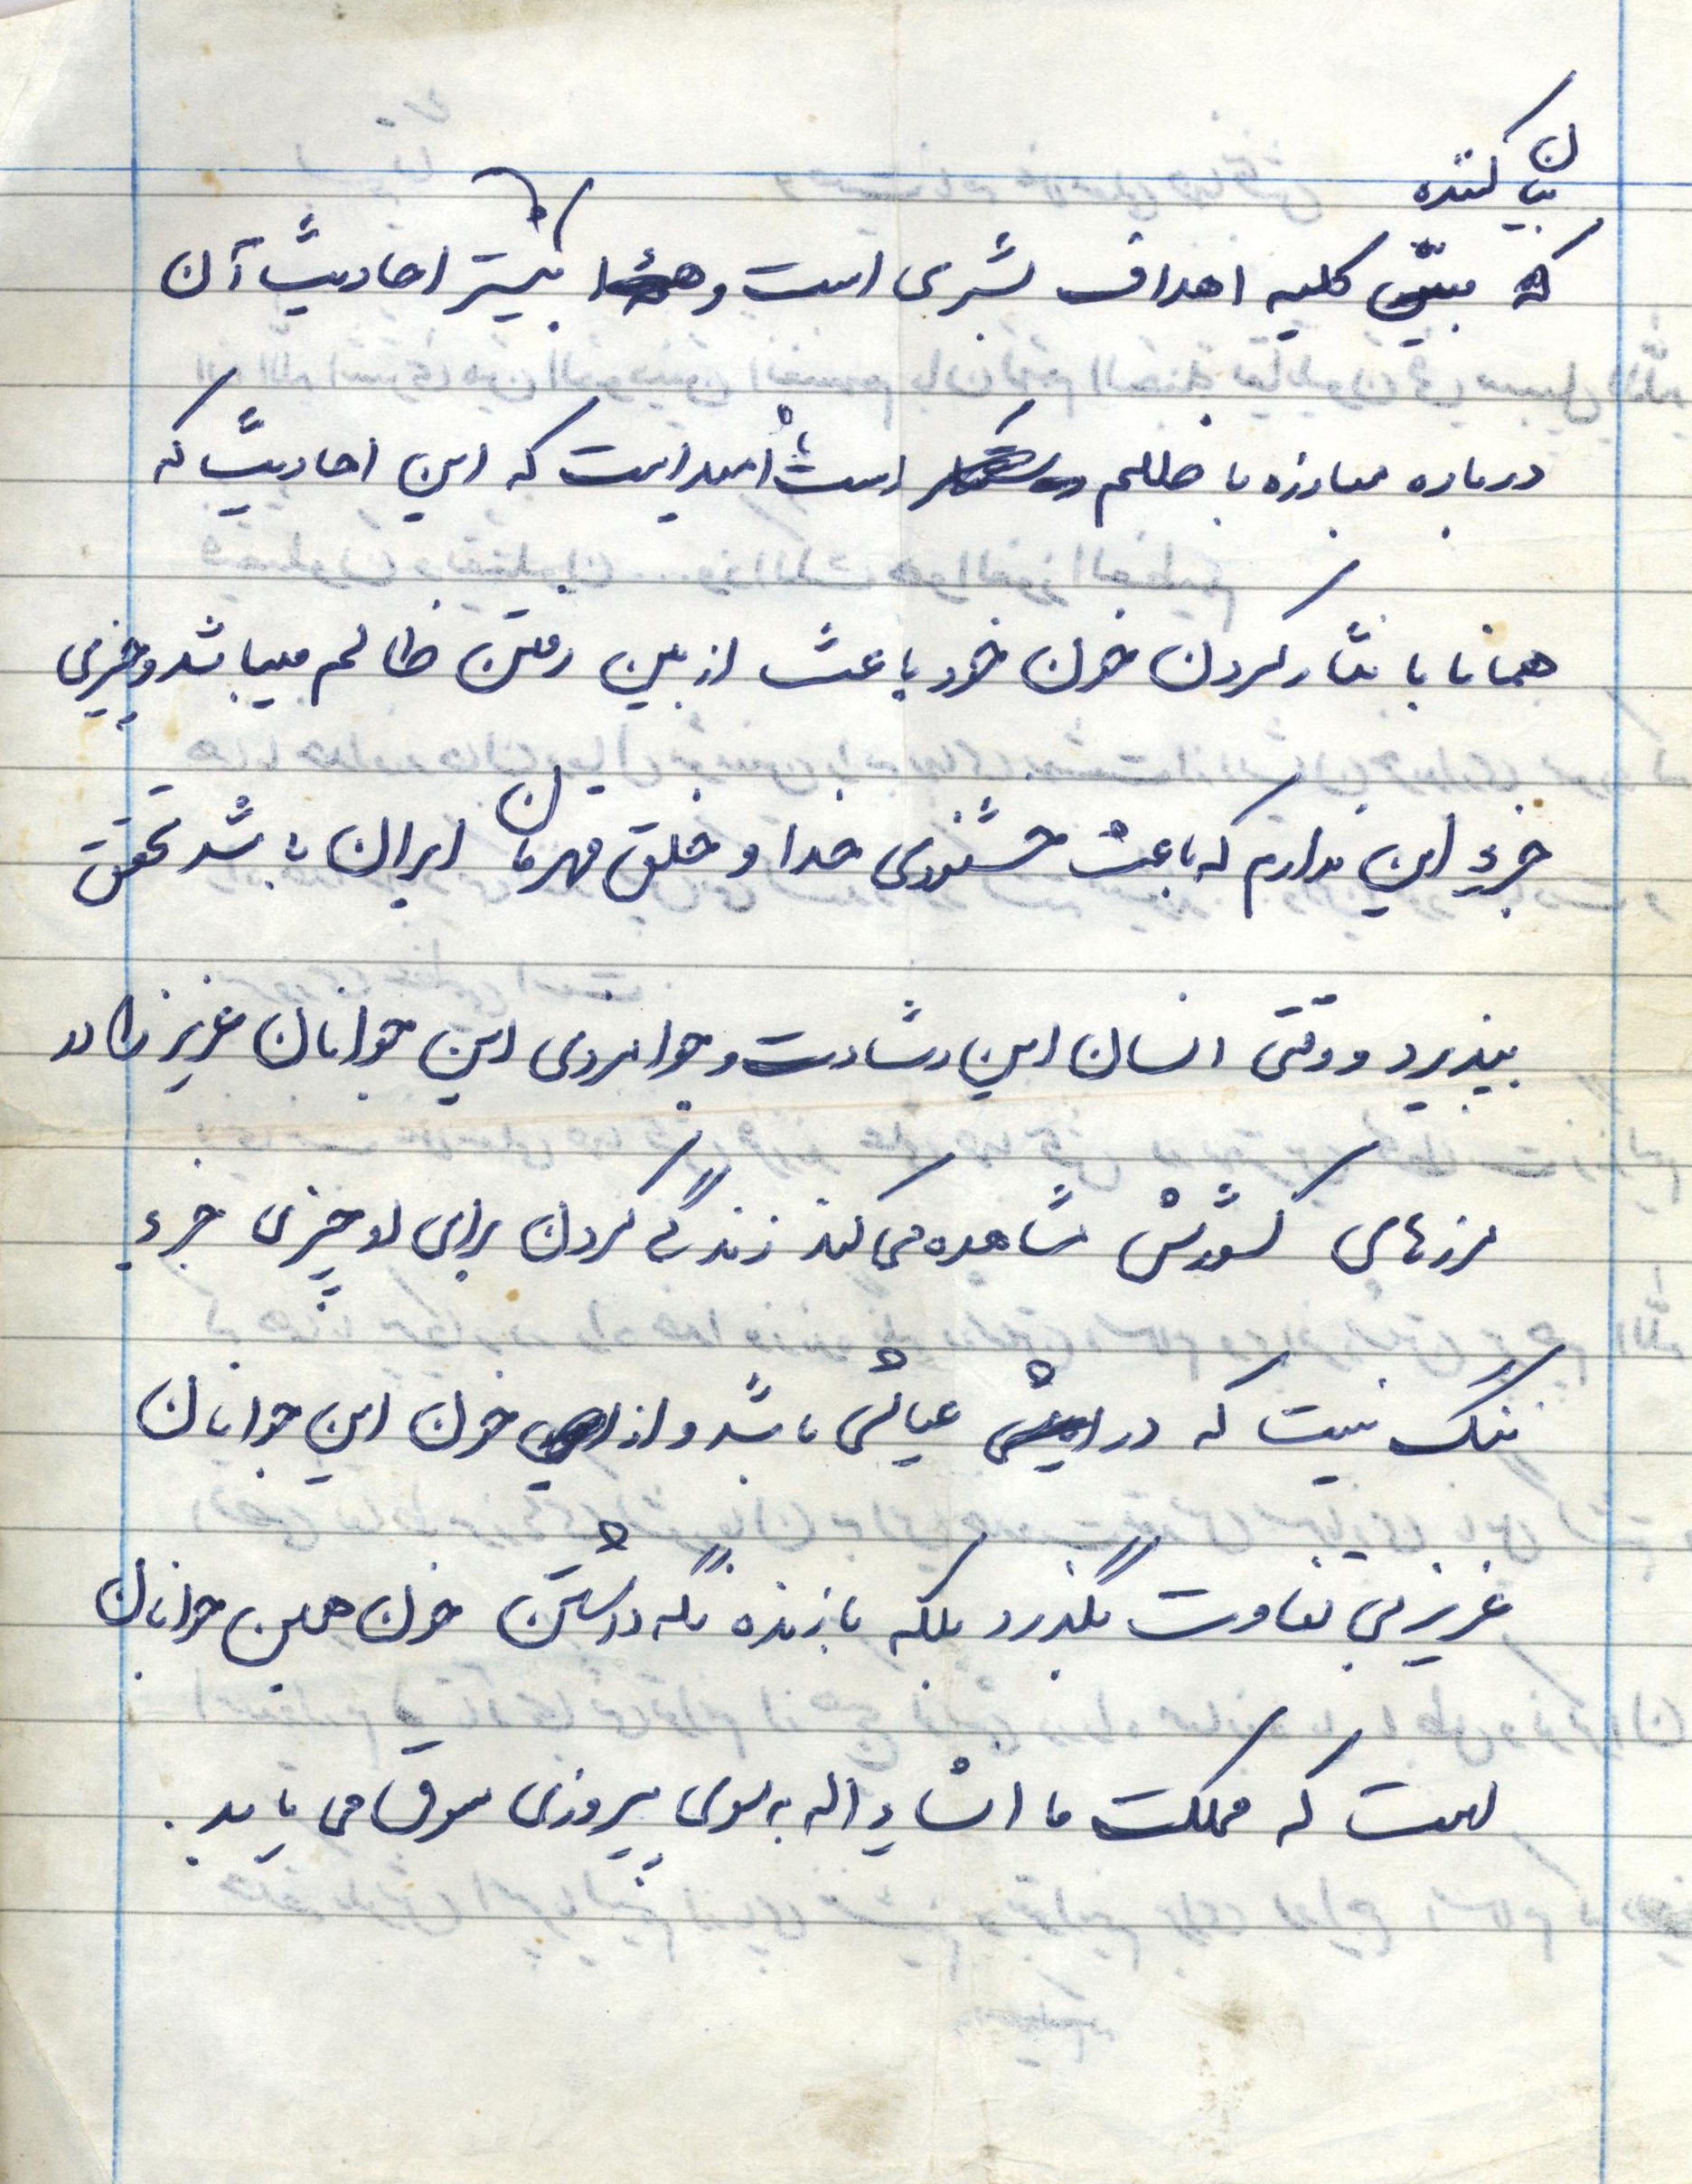 بیان کننده
که مبیّن کلیه اهداف بشری است و بیشتر احادیث آن
درباره مبارزه با ظلم است امید است که این احادیث که
همانا با نثار کردن خون خود باعث از بین رفتن ظالم میباشد و چیزی
جزء این ندارم که باعث خشنودی خدا و خلق قهرمان ایران باشد تحقق
بپذیرد و وقتی انسان این رشادت و جوانمردی این جوانان عزیز را در
مرزهای کشورش مشاهده می کند زندگی کردن برای او چیزی جزء
ننگ نیست که در عیاشی باشد و از خون این جوانان
عزیز بی تفاوت بگذرد بلکه با زنده نگه داشتن خون همین جوانان
است که مملکت ما انشاء اله به سوی پیروزی سوق می یابد.